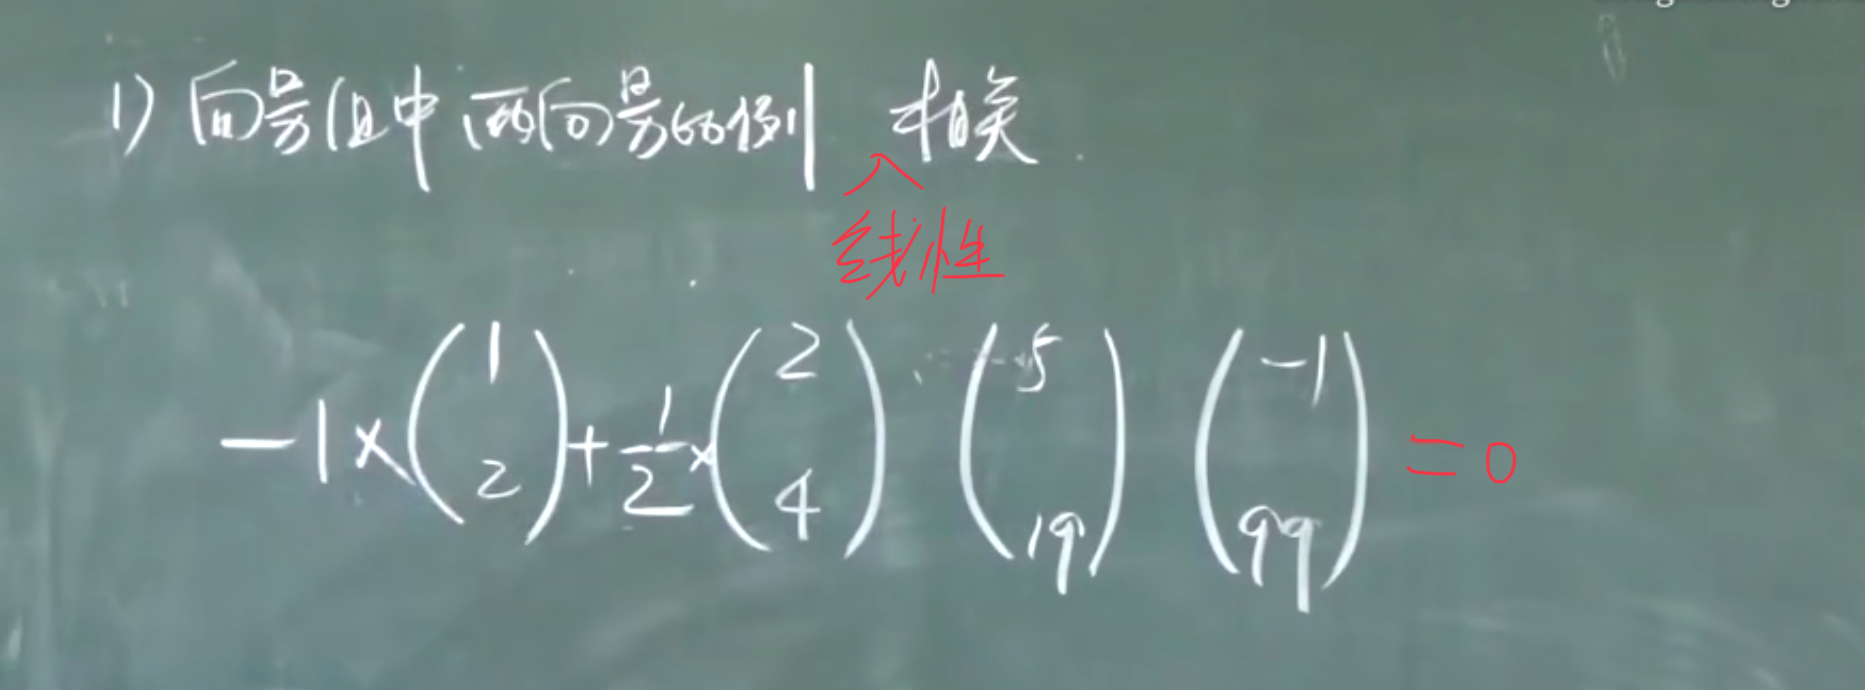 1) 向量组中两向量成比例 相关
线性
-1×(1 2)+1/2×(2 4) (5 19) (-1 99) =0